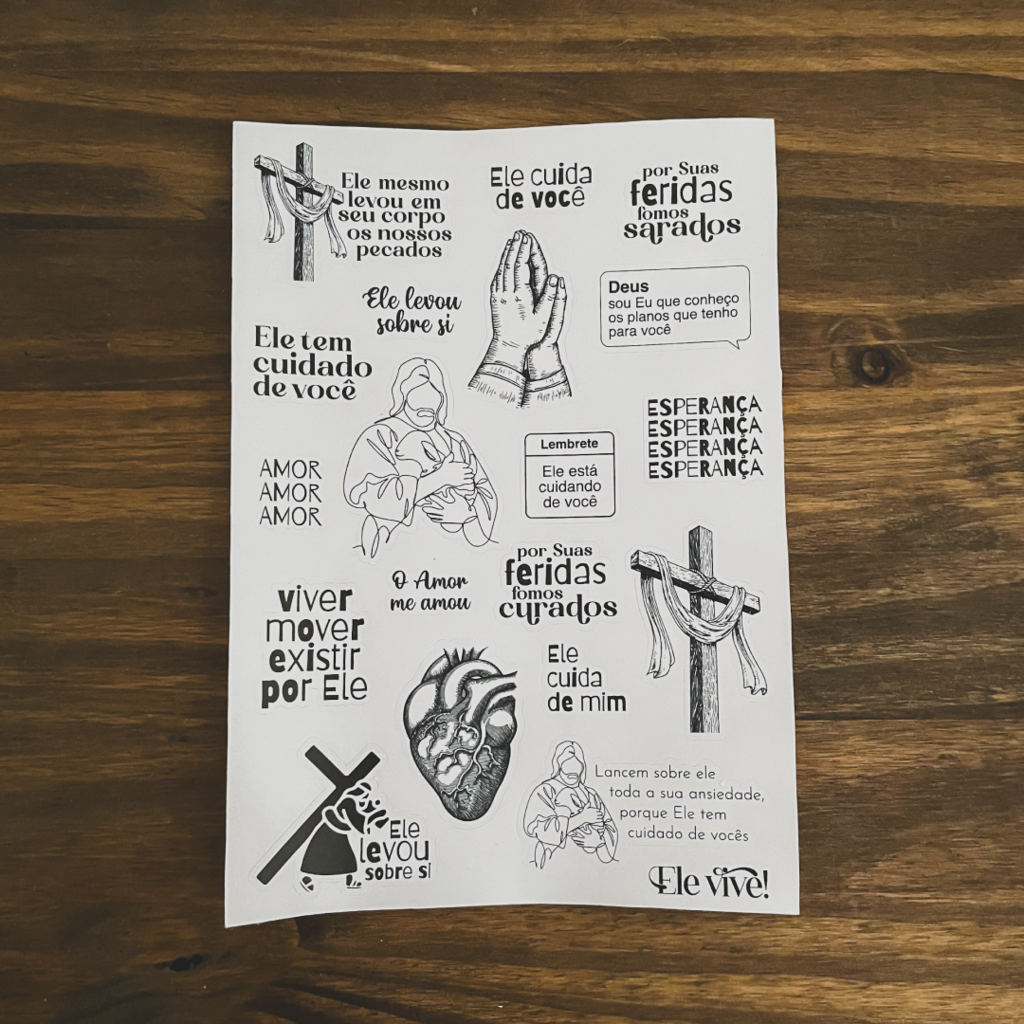 Ele mesmo
levou em
seu corpo
os nossos
pecados
Ele cuida
de você
por Suas
feridas
fomos
sarados
Ele levou
sobre si
Deus
sou Eu que conheço
os planos que tenho
para você
Ele tem
cuidado
de você
ESPERANÇA
ESPERANÇA
ESPERANÇA
ESPERANÇA
Lembrete
Ele está
cuidando
de você
AMOR
AMOR
AMOR
O Amor
me amou
por Suas
feridas
fomos
curados
viver
mover
existir
por Ele
Ele
cuida
de mim
Ele
levou
sobre si
Lancem sobre ele
toda a sua ansiedade,
porque Ele tem
cuidado de vocês
Ele vive!